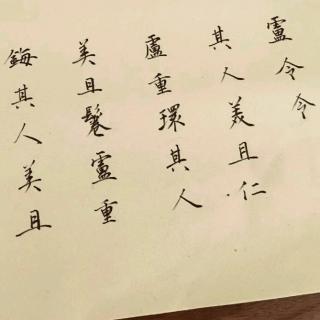 盧令令
其人美且仁
盧重環其人
美且鬈盧重
鋂其人美且